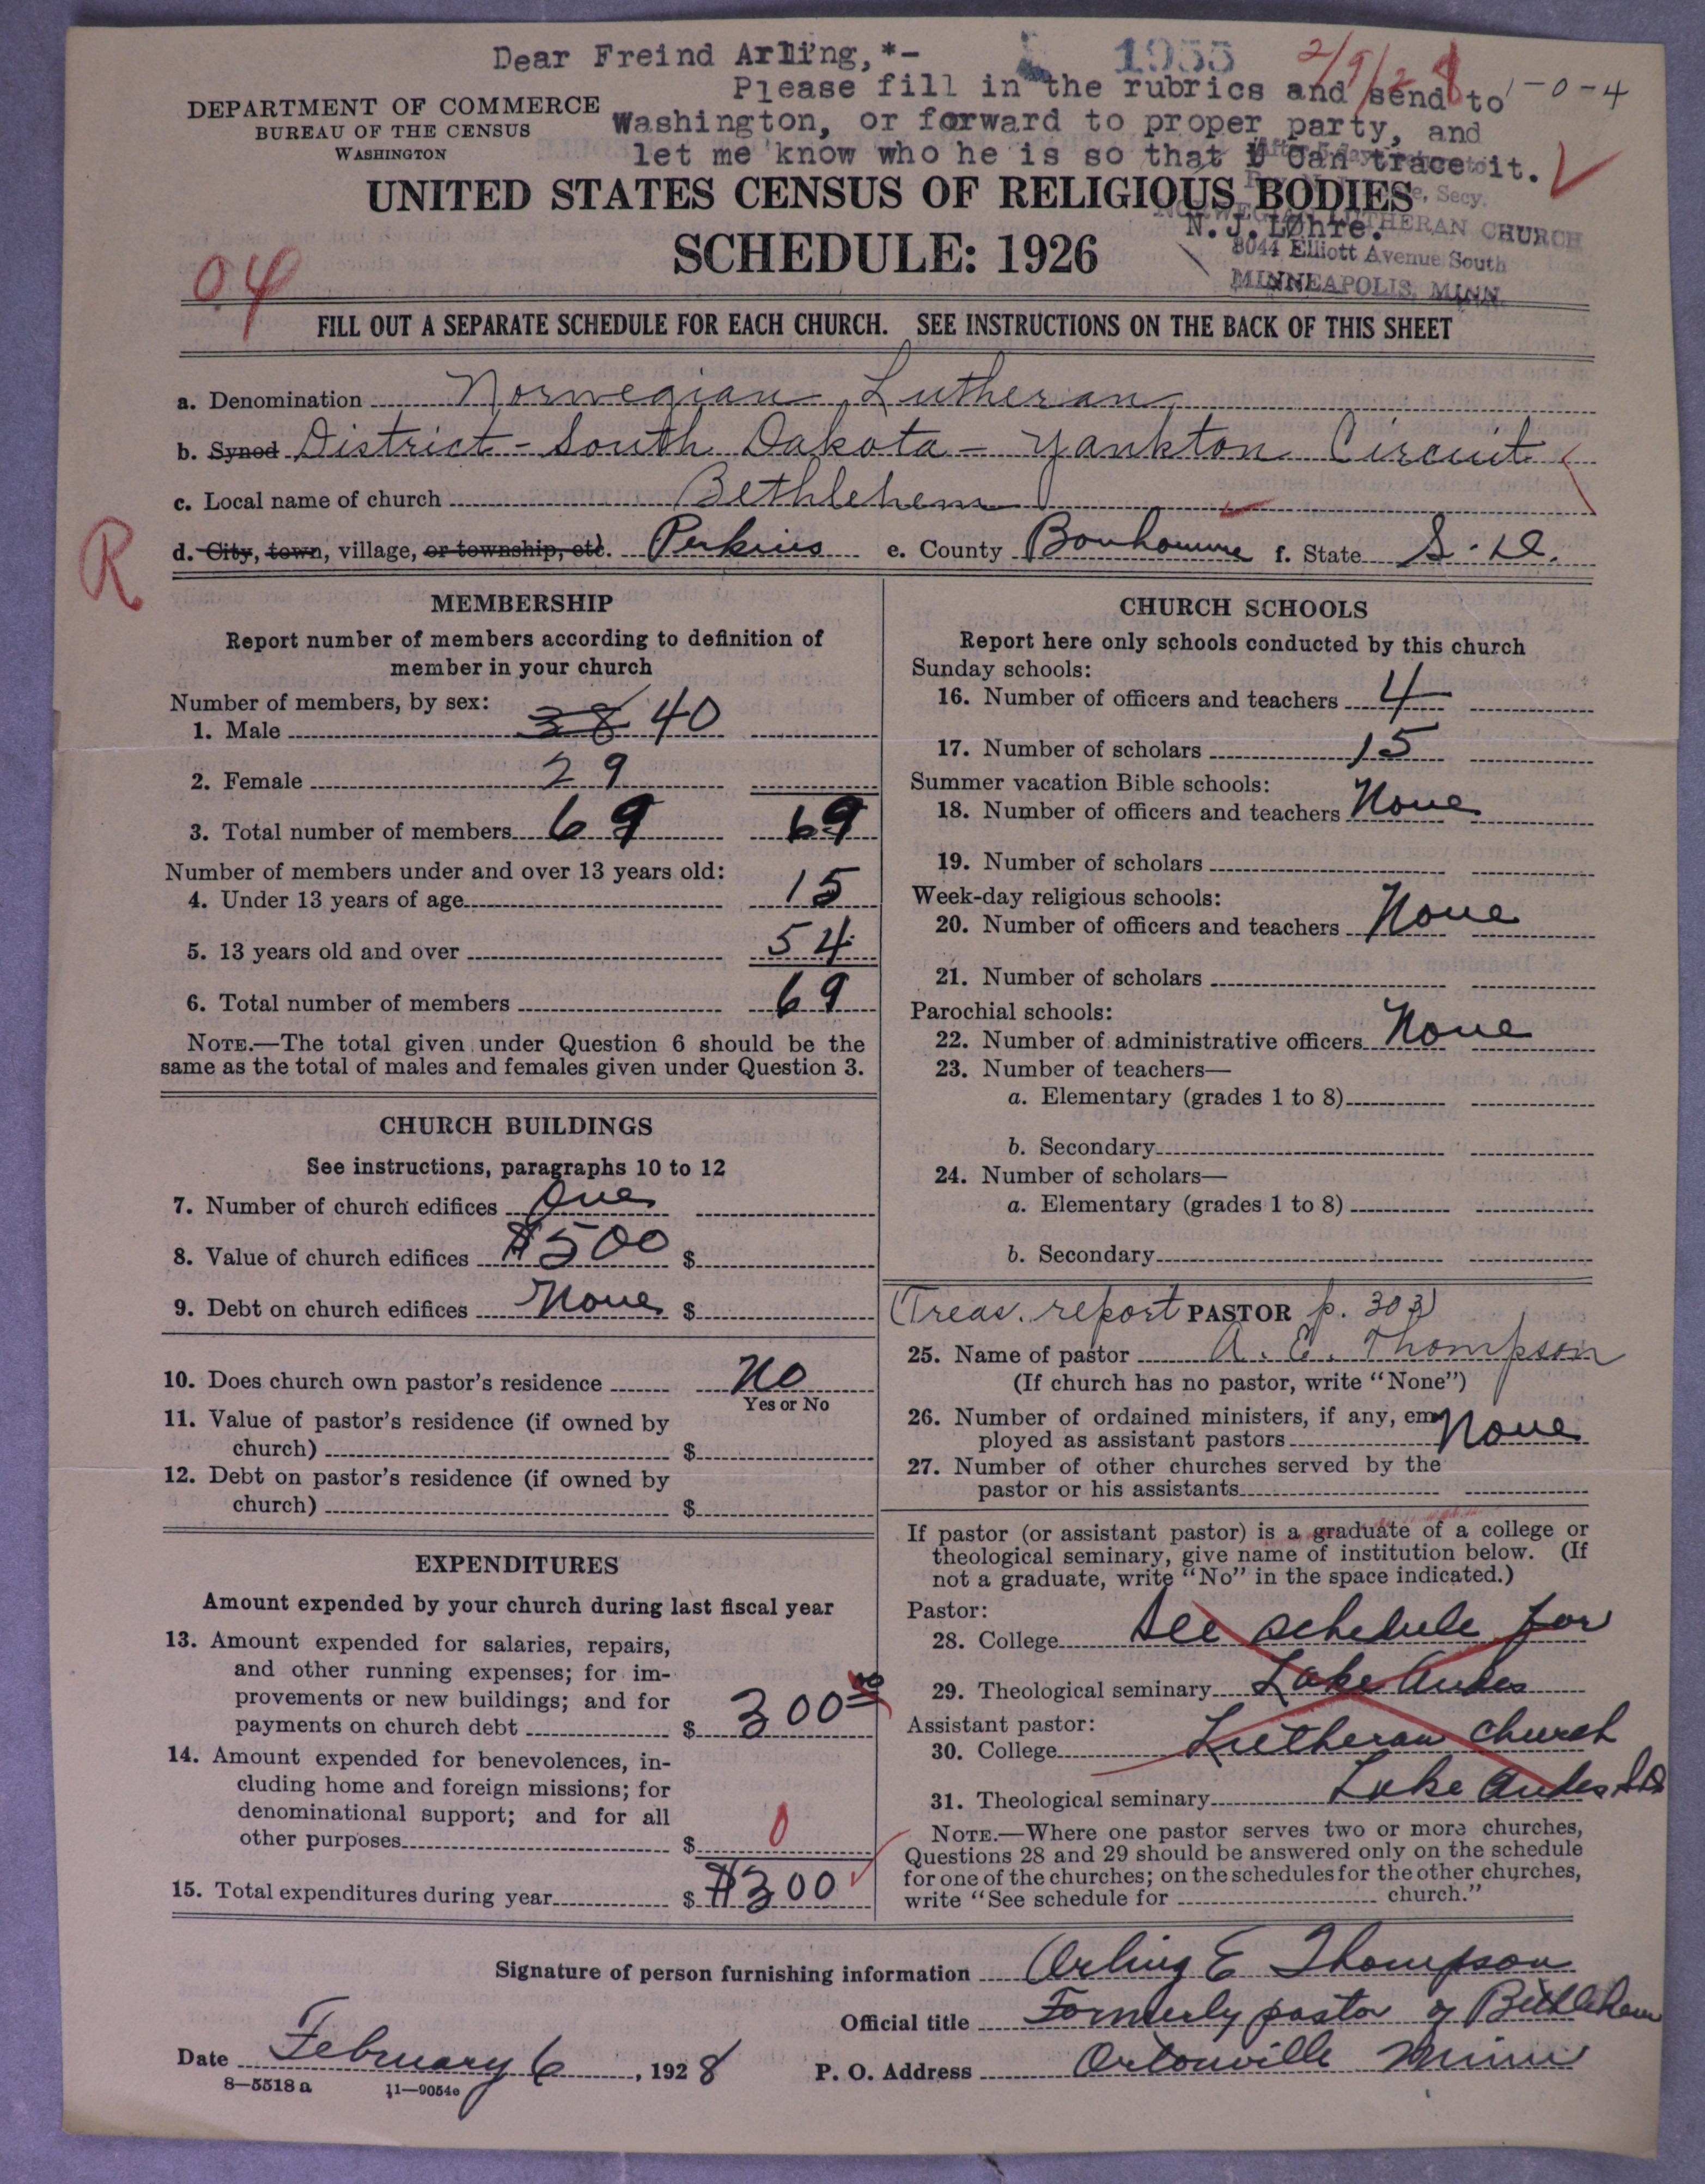 Dear Freind Arling,*-
1955 2/9/28 1-0-4
Please fill in the rubrics and send to
Washington, or forward to proper party, and
let me know who he is so that I Can trace it.
DEPARTMENT OF COMMERCE
BUREAU OF THE CENSUS
WASHINGTON
UNITED STATES CENSUS OF RELIGIOUS BODIES
Secy.
NORWEGIAN LUTHERAN CHURCH
N.J.Løhre.
SCHEDULE: 1926
3044 Elliott Avenue South
MINNEAPOLIS, MINN.
04
FILL OUT A SEPARATE SCHEDULE FOR EACH CHURCH. SEE INSTRUCTIONS ON THE BACK OF THIS SHEET
a. Denomination Norwegian Lutheran
b. Synod District - South Dakota - Yankton Circuit
c. Local name of church Bethlehem
R
d. City, town, village, or township, etc. Perkins e. County Bonhomme f. State S. D.
MEMBERSHIP
Report number of members according to definition of
member in your church
Number of members, by sex:
1. Male 38 40
2. Female 29
3. Total number of members 69 69
Number of members under and over 13 years old:
4. Under 13 years of age 15
5. 13 years old and over 54
6. Total number of members 69
NOTE.—The total given under Question 6 should be the
same as the total of males and females given under Question 3.
CHURCH BUILDINGS
See instructions, paragraphs 10 to 12
7. Number of church edifices One
8. Value of church edifices $500 $
9. Debt on church edifices None $
10. Does church own pastor's residence No
Yes or No
11. Value of pastor's residence (if owned by
church) $
12. Debt on pastor's residence (if owned by
church) $
EXPENDITURES
Amount expended by your church during last fiscal year
13. Amount expended for salaries, repairs,
and other running expenses; for im-
provements or new buildings; and for
payments on church debt $ 300 00
14. Amount expended for benevolences, in-
cluding home and foreign missions; for
denominational support; and for all
other purposes $ 0
15. Total expenditures during year $ $300
CHURCH SCHOOLS
Report here only schools conducted by this church
Sunday schools:
16. Number of officers and teachers 4
17. Number of scholars 15
Summer vacation Bible schools:
18. Number of officers and teachers None
19. Number of scholars
Week-day religious schools:
20. Number of officers and teachers None
21. Number of scholars
Parochial schools:
22. Number of administrative officers None
23. Number of teachers—
a. Elementary (grades 1 to 8)
b. Secondary
24. Number of scholars—
a. Elementary (grades 1 to 8)
b. Secondary
(Treas. report PASTOR p. 303)
25. Name of pastor A. E. Thompson
(If church has no pastor, write "None")
26. Number of ordained ministers, if any, em-
ployed as assistant pastors None
27. Number of other churches served by the
pastor or his assistants
If pastor (or assistant pastor) is a graduate of a college or
theological seminary, give name of institution below. (If
not a graduate, write "No" in the space indicated.)
Pastor:
28. College See schedule for
29. Theological seminary Lake Andes
Assistant pastor:
30. College Lutheran church
31. Theological seminary Lake Andes S D
NOTE.—Where one pastor serves two or more churches,
Questions 28 and 29 should be answered only on the schedule
for one of the churches; on the schedules for the other churches,
write "See schedule for church."
Signature of person furnishing information Arling E Thompson
Official title Formerly pastor of Bethlehem
Date February 6, 1928 P. O. Address Ortonville Minn
8—5518 a 11—9054a